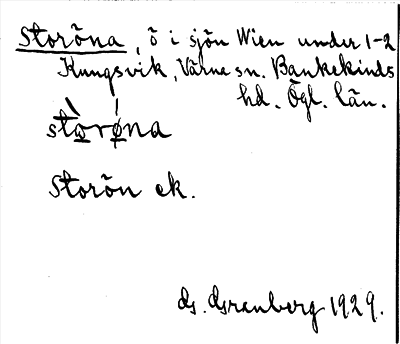 Storöna, ö i sjön Wien under 1-2
Kungsvik, Värna sn. Bankekinds
hd. Ögl. län.
stòrø̀na
Storön ek.
Gs. Grenberg 1929.